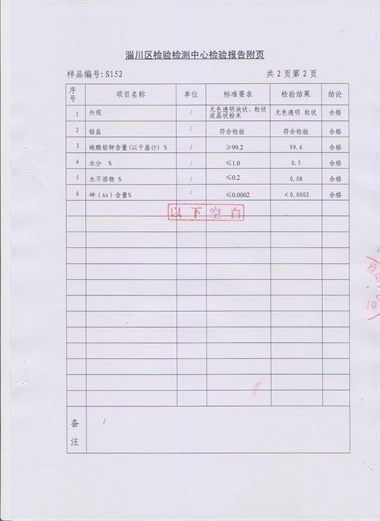 淄川区检验检测中心检验报告附页
样品编号：S152 共 2 页第 2 页
序号 项目名称 单位 标准要求 检验结果 结论
1 外观 / 无色透明块状、粒状或晶状粉末 无色透明 粒状 合格
2 铵盐 / 符合检验 符合检验 合格
3 硫酸铝钾含量(以干基计) % / ≥99.2 99.6 合格
4 水分 % / ≤1.0 0.5 合格
5 水不溶物 % / ≤0.2 0.08 合格
6 砷（As）含量% / ≤0.0002 <0.0002 合格
以下空白
备注 /